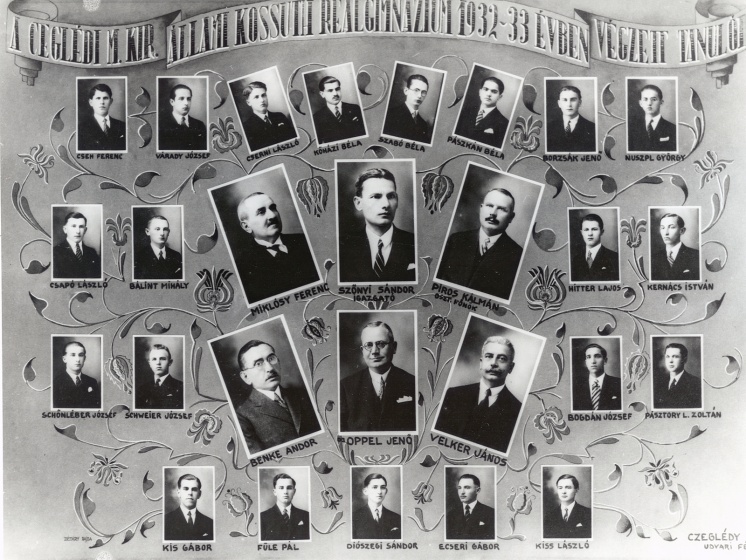 A CEGLÉDI M. KIR. ÁLLAMI KOSSUTH REÁLGIMNÁZIUM 1932-33 ÉVBEN VÉGZETT TANULÓI
CSEH FERENC
VÁRADY JÓZSEF
CSERNI LÁSZLÓ
KŐHÁZI BÉLA
SZABÓ BÉLA
PÁSZKÁN BÉLA
BORZSÁK JENŐ
NUSZPL GYÖRGY
CSAPÓ LÁSZLÓ
BÁLINT MIHÁLY
MIKLÓSY FERENC
SZŐNYI SÁNDOR
IGAZGATÓ
PIROS KÁLMÁN
OSZT. FŐNÖK
HITTER LAJOS
KERNÁCS ISTVÁN
SCHÖNLÉBER JÓZSEF
SCHWEIER JÓZSEF
BENKE ANDOR
POPPEL JENŐ
VELKER JÁNOS
BOGDÁN JÓZSEF
PÁSZTORY L. ZOLTÁN
KIS GÁBOR
FÜLE PÁL
DIÓSZEGI SÁNDOR
ECSERI GÁBOR
KISS LÁSZLÓ
CZEGLÉDY
UDVARI F